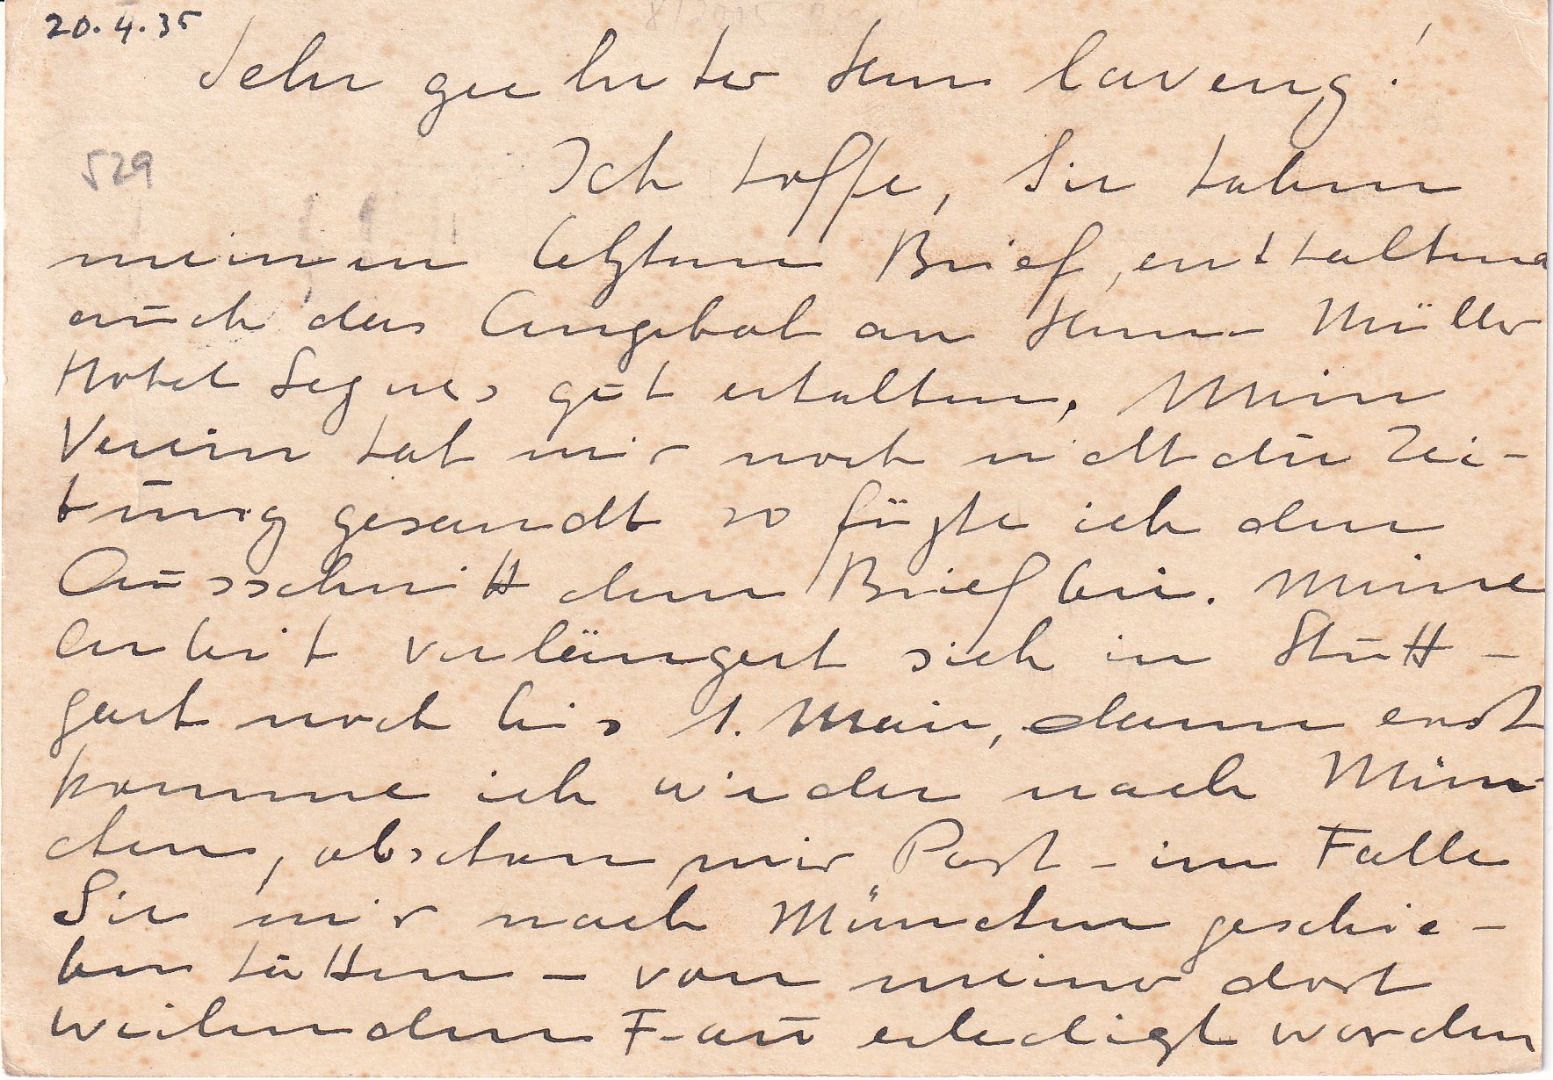 20.4.35
Sehr geehrter Herr Caveng!
529
Ich hoffe, Sie haben
meinen letzten Brief, enthaltend
auch das Angebot an Herrn Müller
Hotel Segnes gut erhalten. Mein
Verein hat mir noch nicht die Zei-
tung gesandt so fügte ich den
Ausschnitt dem Brief bei. Meine
Arbeit verlängert sich in Stutt-
gart noch bis 1. Mai, dann erst
komme ich wieder nach Mün-
chen, obschon mir Post - im Falle
Sie mir nach München geschrie-
ben hätten - von meiner dort
weilenden Frau erledigt worden